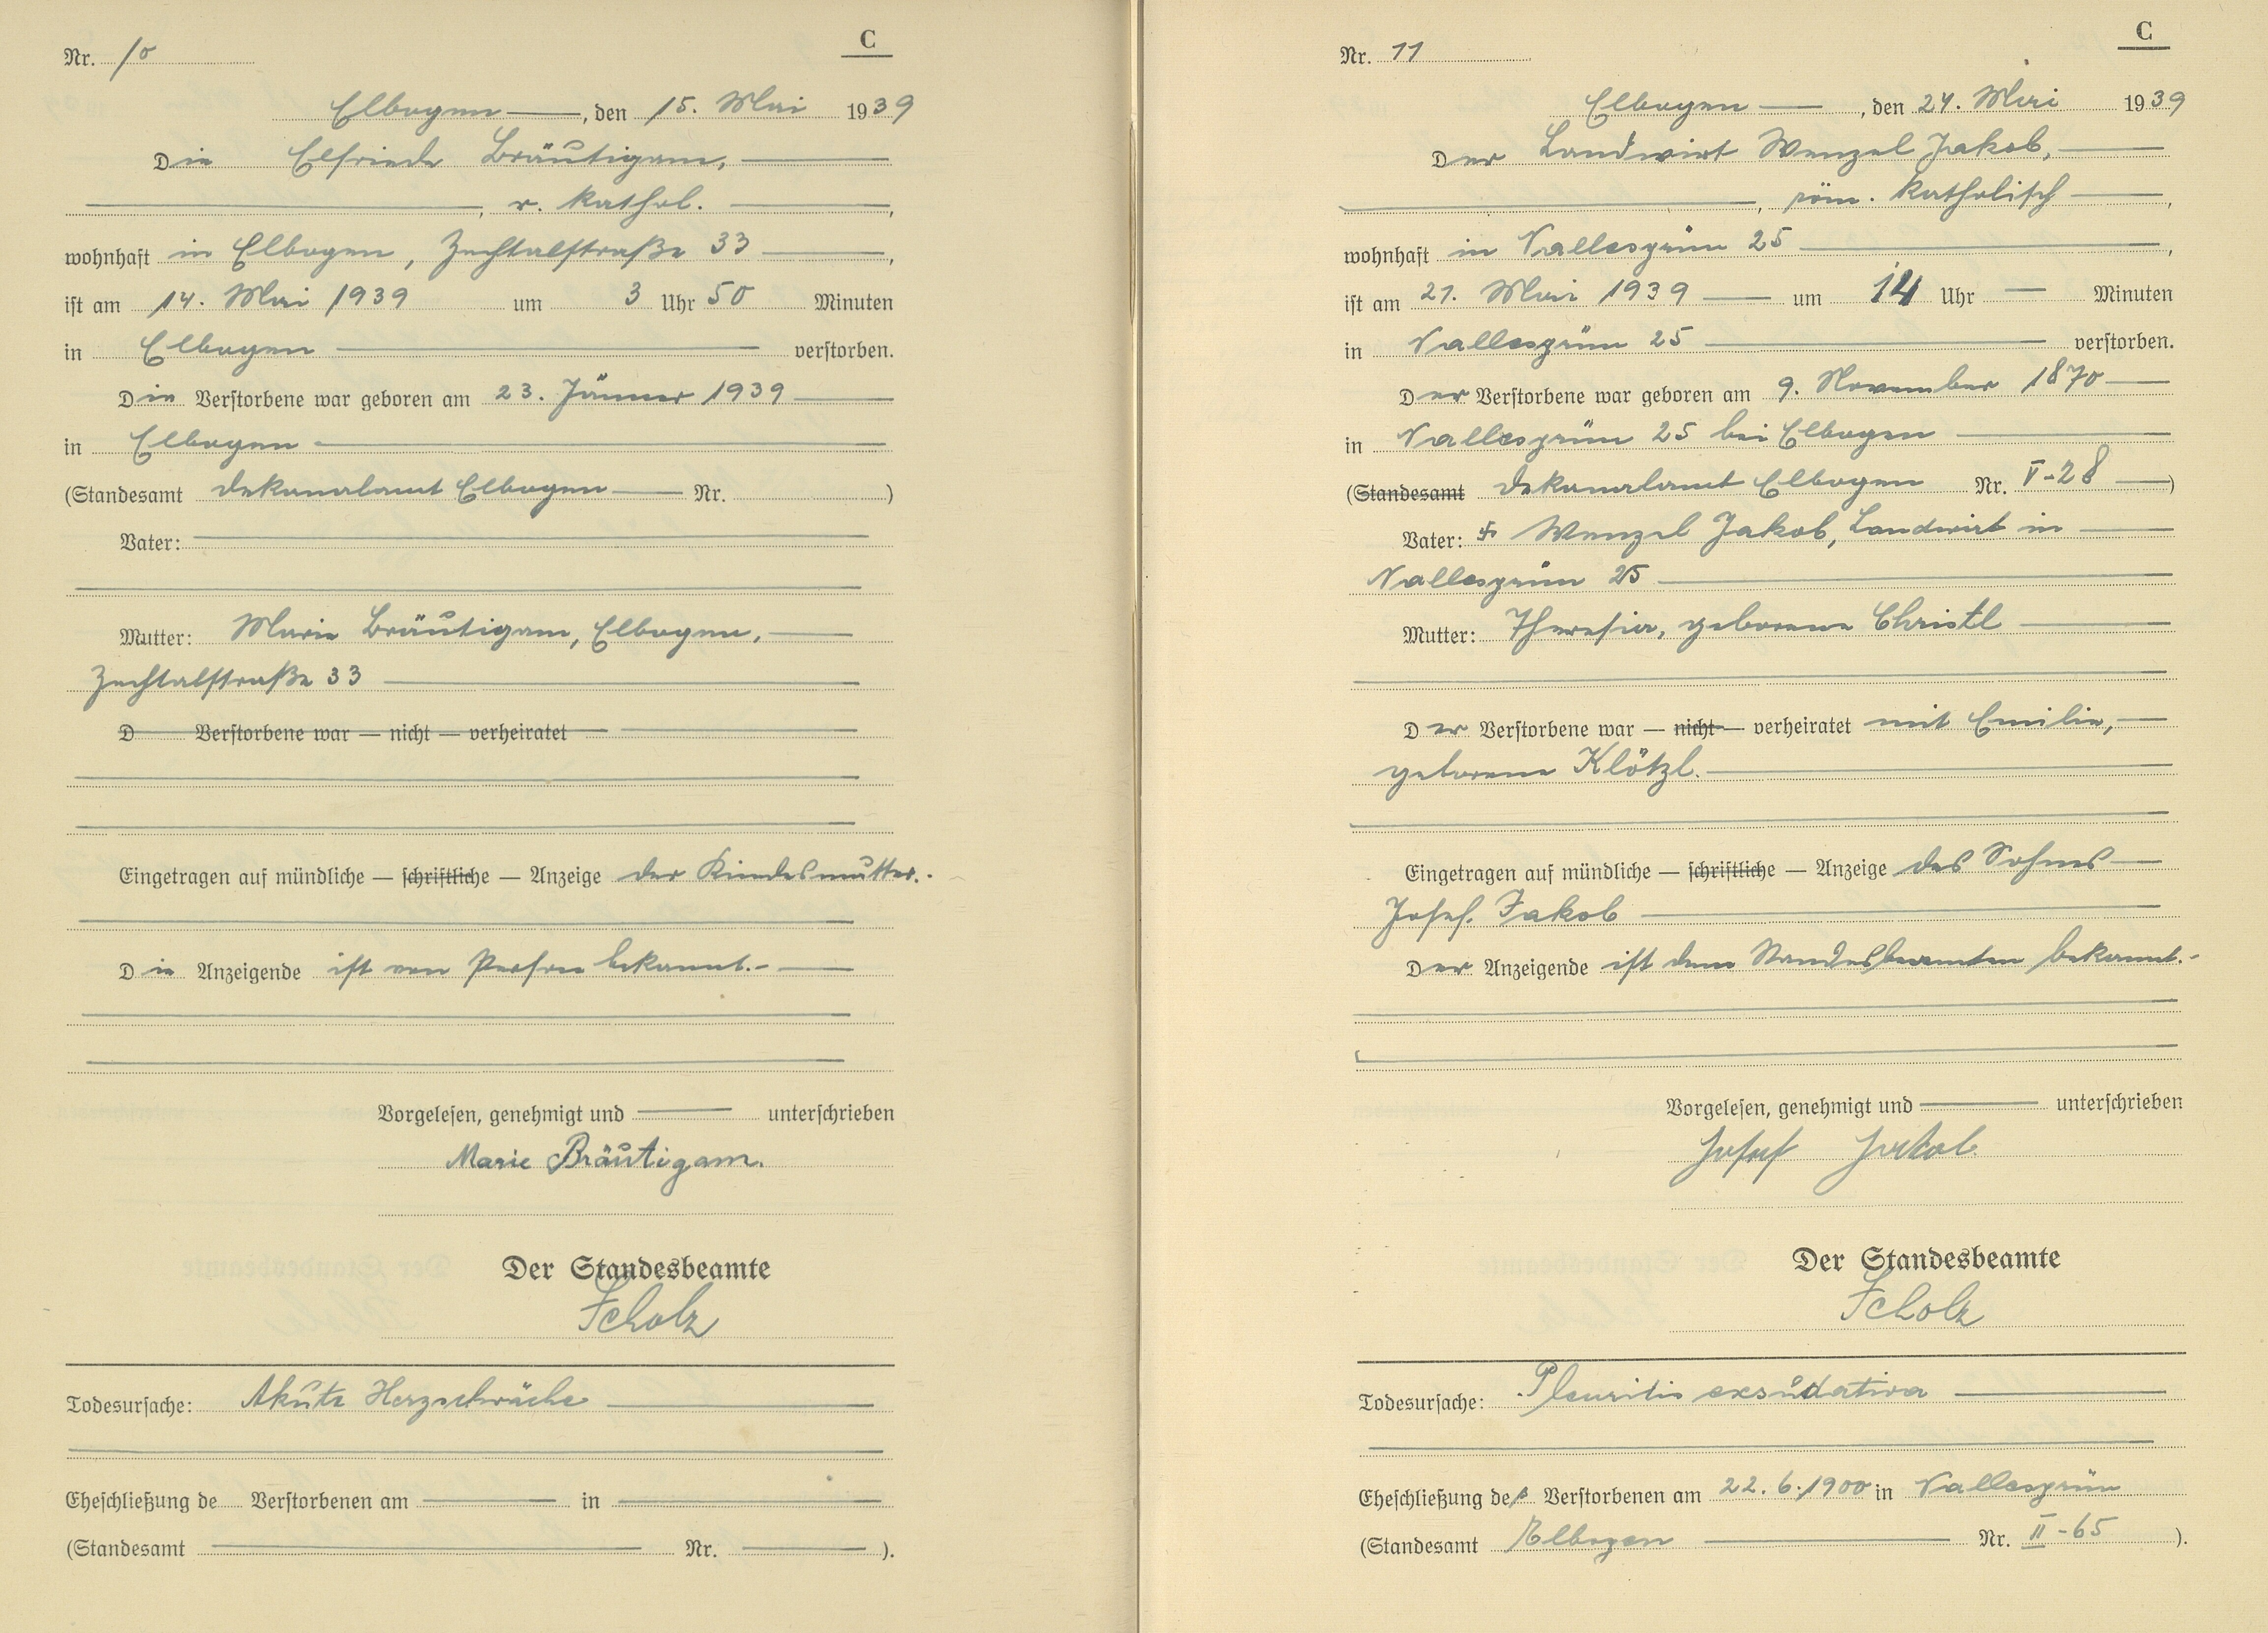 C
Nr. 10
Elbogen, den 15. Mai 1939
Die Elfriede Bräutigam,
, r. kathol. ,
wohnhaft in Elbogen, Zechtalstraße 33 ,
ist am 14. Mai 1939 um 3 Uhr 50 Minuten
in Elbogen verstorben.
Die Verstorbene war geboren am 23. Jänner 1939
in Elbogen
(Standesamt Dekanalamt Elbogen Nr. )
Vater:
Mutter: Marie Bräutigam, Elbogen,
Zechtalstraße 33
D Verstorbene war — nicht — verheiratet
Eingetragen auf mündliche — schriftliche — Anzeige der Kindesmutter.
Die Anzeigende ist von Person bekannt.
Vorgelesen, genehmigt und unterschrieben
Marie Bräutigam.
Der Standesbeamte
Scholz
Todesursache: Akute Herzschwäche
Eheschließung de Verstorbenen am in
(Standesamt Nr. ).
C
Nr. 11
Elbogen, den 24. Mai 1939
Der Landwirt Wenzel Jakob,
, röm. katholisch ,
wohnhaft in Nallesgrün 25 ,
ist am 21. Mai 1939 um 14 Uhr — Minuten
in Nallesgrün 25 verstorben.
Der Verstorbene war geboren am 9. November 1870
in Nallesgrün 25 bei Elbogen
(Standesamt Dekanalamt Elbogen Nr. V-28 )
Vater: Wenzel Jakob, Landwirt in
Nallesgrün 25
Mutter: Theresia, geborene Christl
Der Verstorbene war — nicht — verheiratet mit Emilie,
geborene Klötzl.
Eingetragen auf mündliche — schriftliche — Anzeige des Sohnes
Josef Jakob
Der Anzeigende ist dem Standesbeamten bekannt.
Vorgelesen, genehmigt und unterschrieben
Josef Jakob
Der Standesbeamte
Scholz
Todesursache: Pleuritis exsudativa
Eheschließung des Verstorbenen am 22.6.1900 in Nallesgrün
(Standesamt Elbogen Nr. II-65 ).